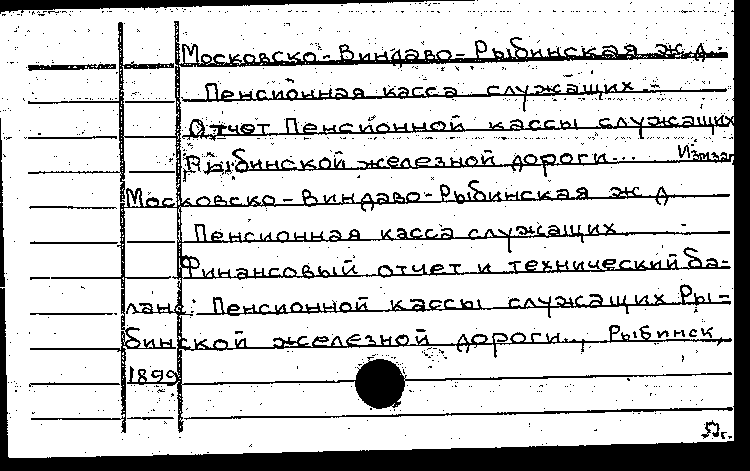 Московско-Виндаво-Рыбинская ж.д.
Пенсионная касса служащих.
Отчет Пенсионной кассы служащих
Рыбинской железной дороги...
Московско-Виндаво-Рыбинская ж д
Пенсионная касса служащих
Финансовый отчет и технический ба-
ланс: Пенсионной кассы служащих Ры-
бинской железной дороги.., Рыбинск,
1899